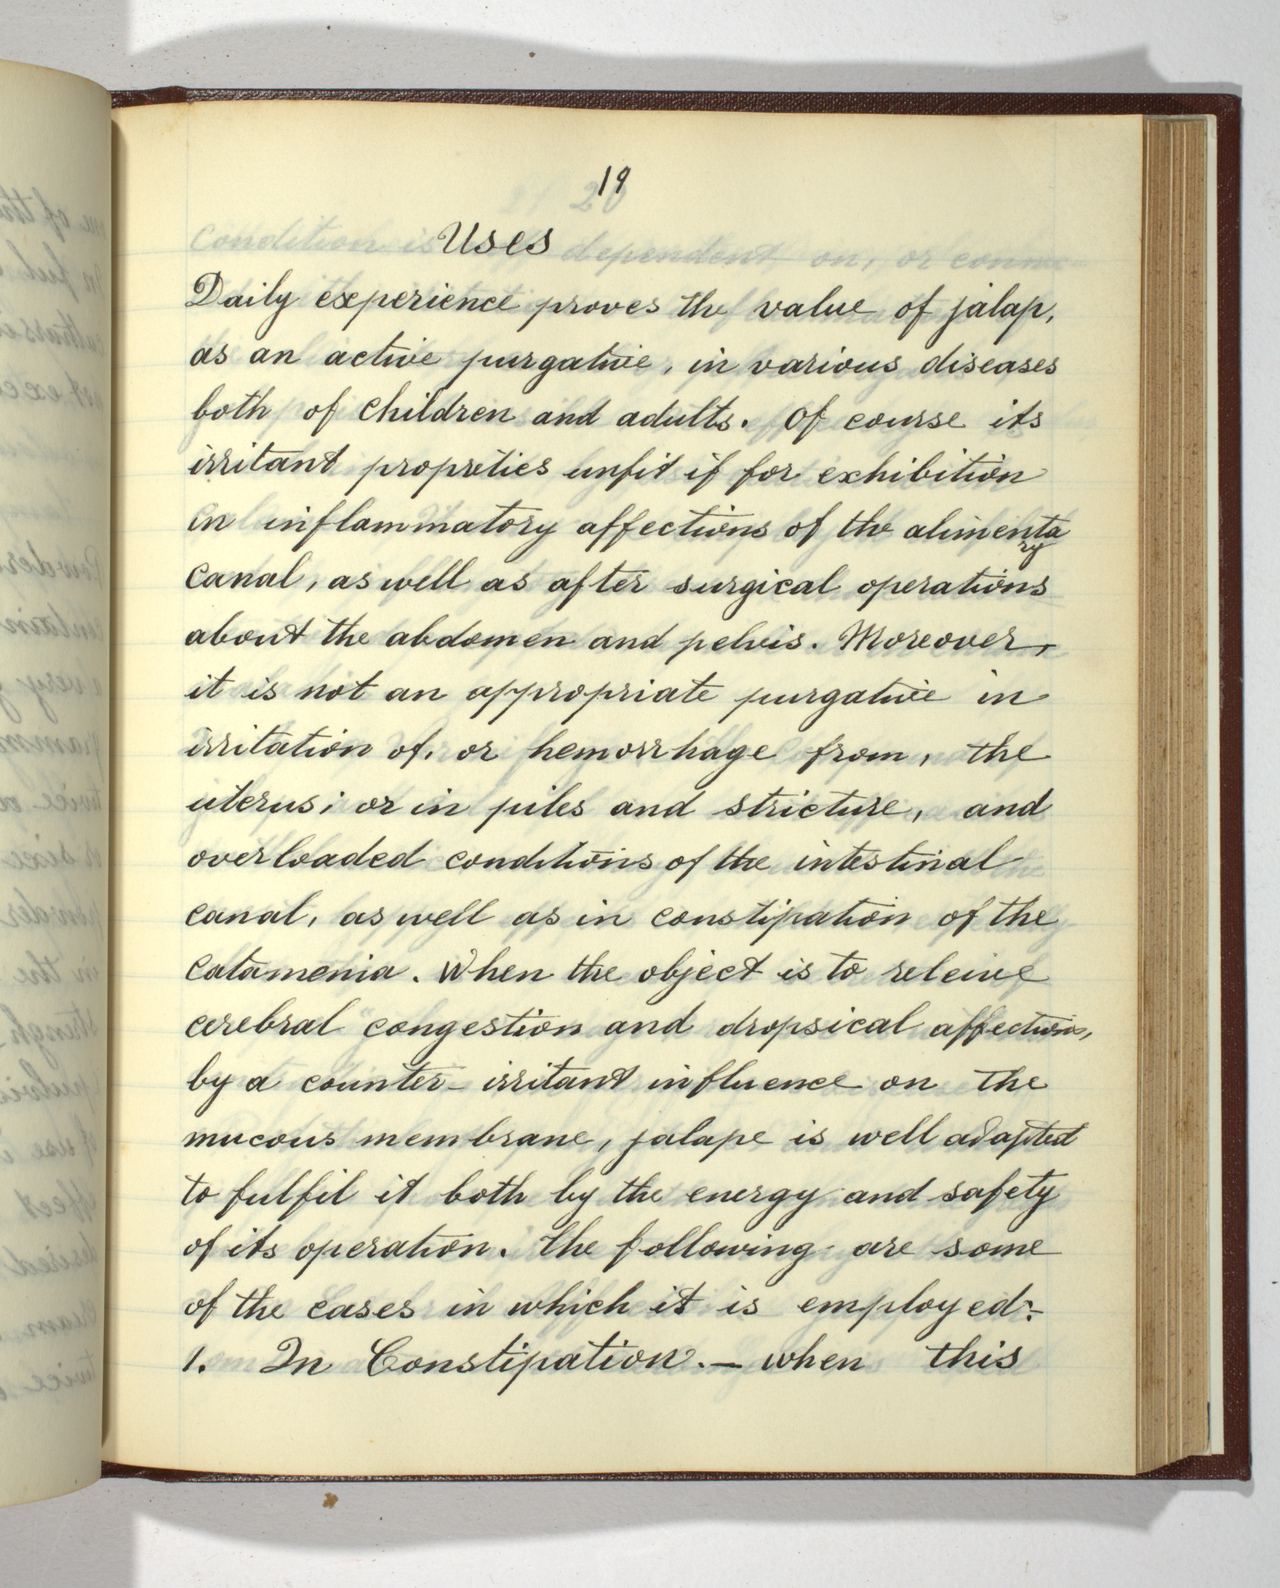 19
Uses
Daily experience proves the value of jalap,
as an active purgative, in various diseases
both of children and adults. Of course its
irritant propreties unfit if for exhibition
in inflammatory affections of the alimenta
ry
Canal, as well as after surgical operations
about the abdomen and pelvis. Moreover,
it is not an appropriate purgative in
irritation of, or hemorrhage from, the
uterus; or in piles and stricture, and
overloaded conditions of the intestinal
canal, as well as in constipation of the
Catamenia. When the object is to releive
cerebral congestion and dropsical affections,
by a counter-irritant influence on the
mucous membrane, jalape is well adapted
to fulfil it both by the energy and safety
of its operation. The following are some
of the cases in which it is employed:-
1. In Constipation.— when this